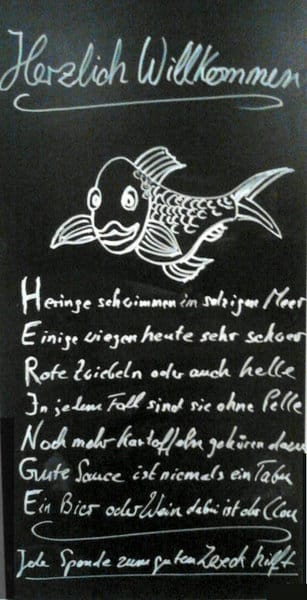 Herzlich Willkommen
Heringe schwimmen im salzigen Meer
Einige wiegen heute sehr schwer
Rote Zwiebeln oder auch helle
In jedem Fall sind sie ohne Pelle
Noch mehr Kartoffeln gehören dazu
Gute Sauce ist niemals ein Tabu
Ein Bier oder Wein dabei ist der Clou
Jede Spende zum guten Zweck hilft